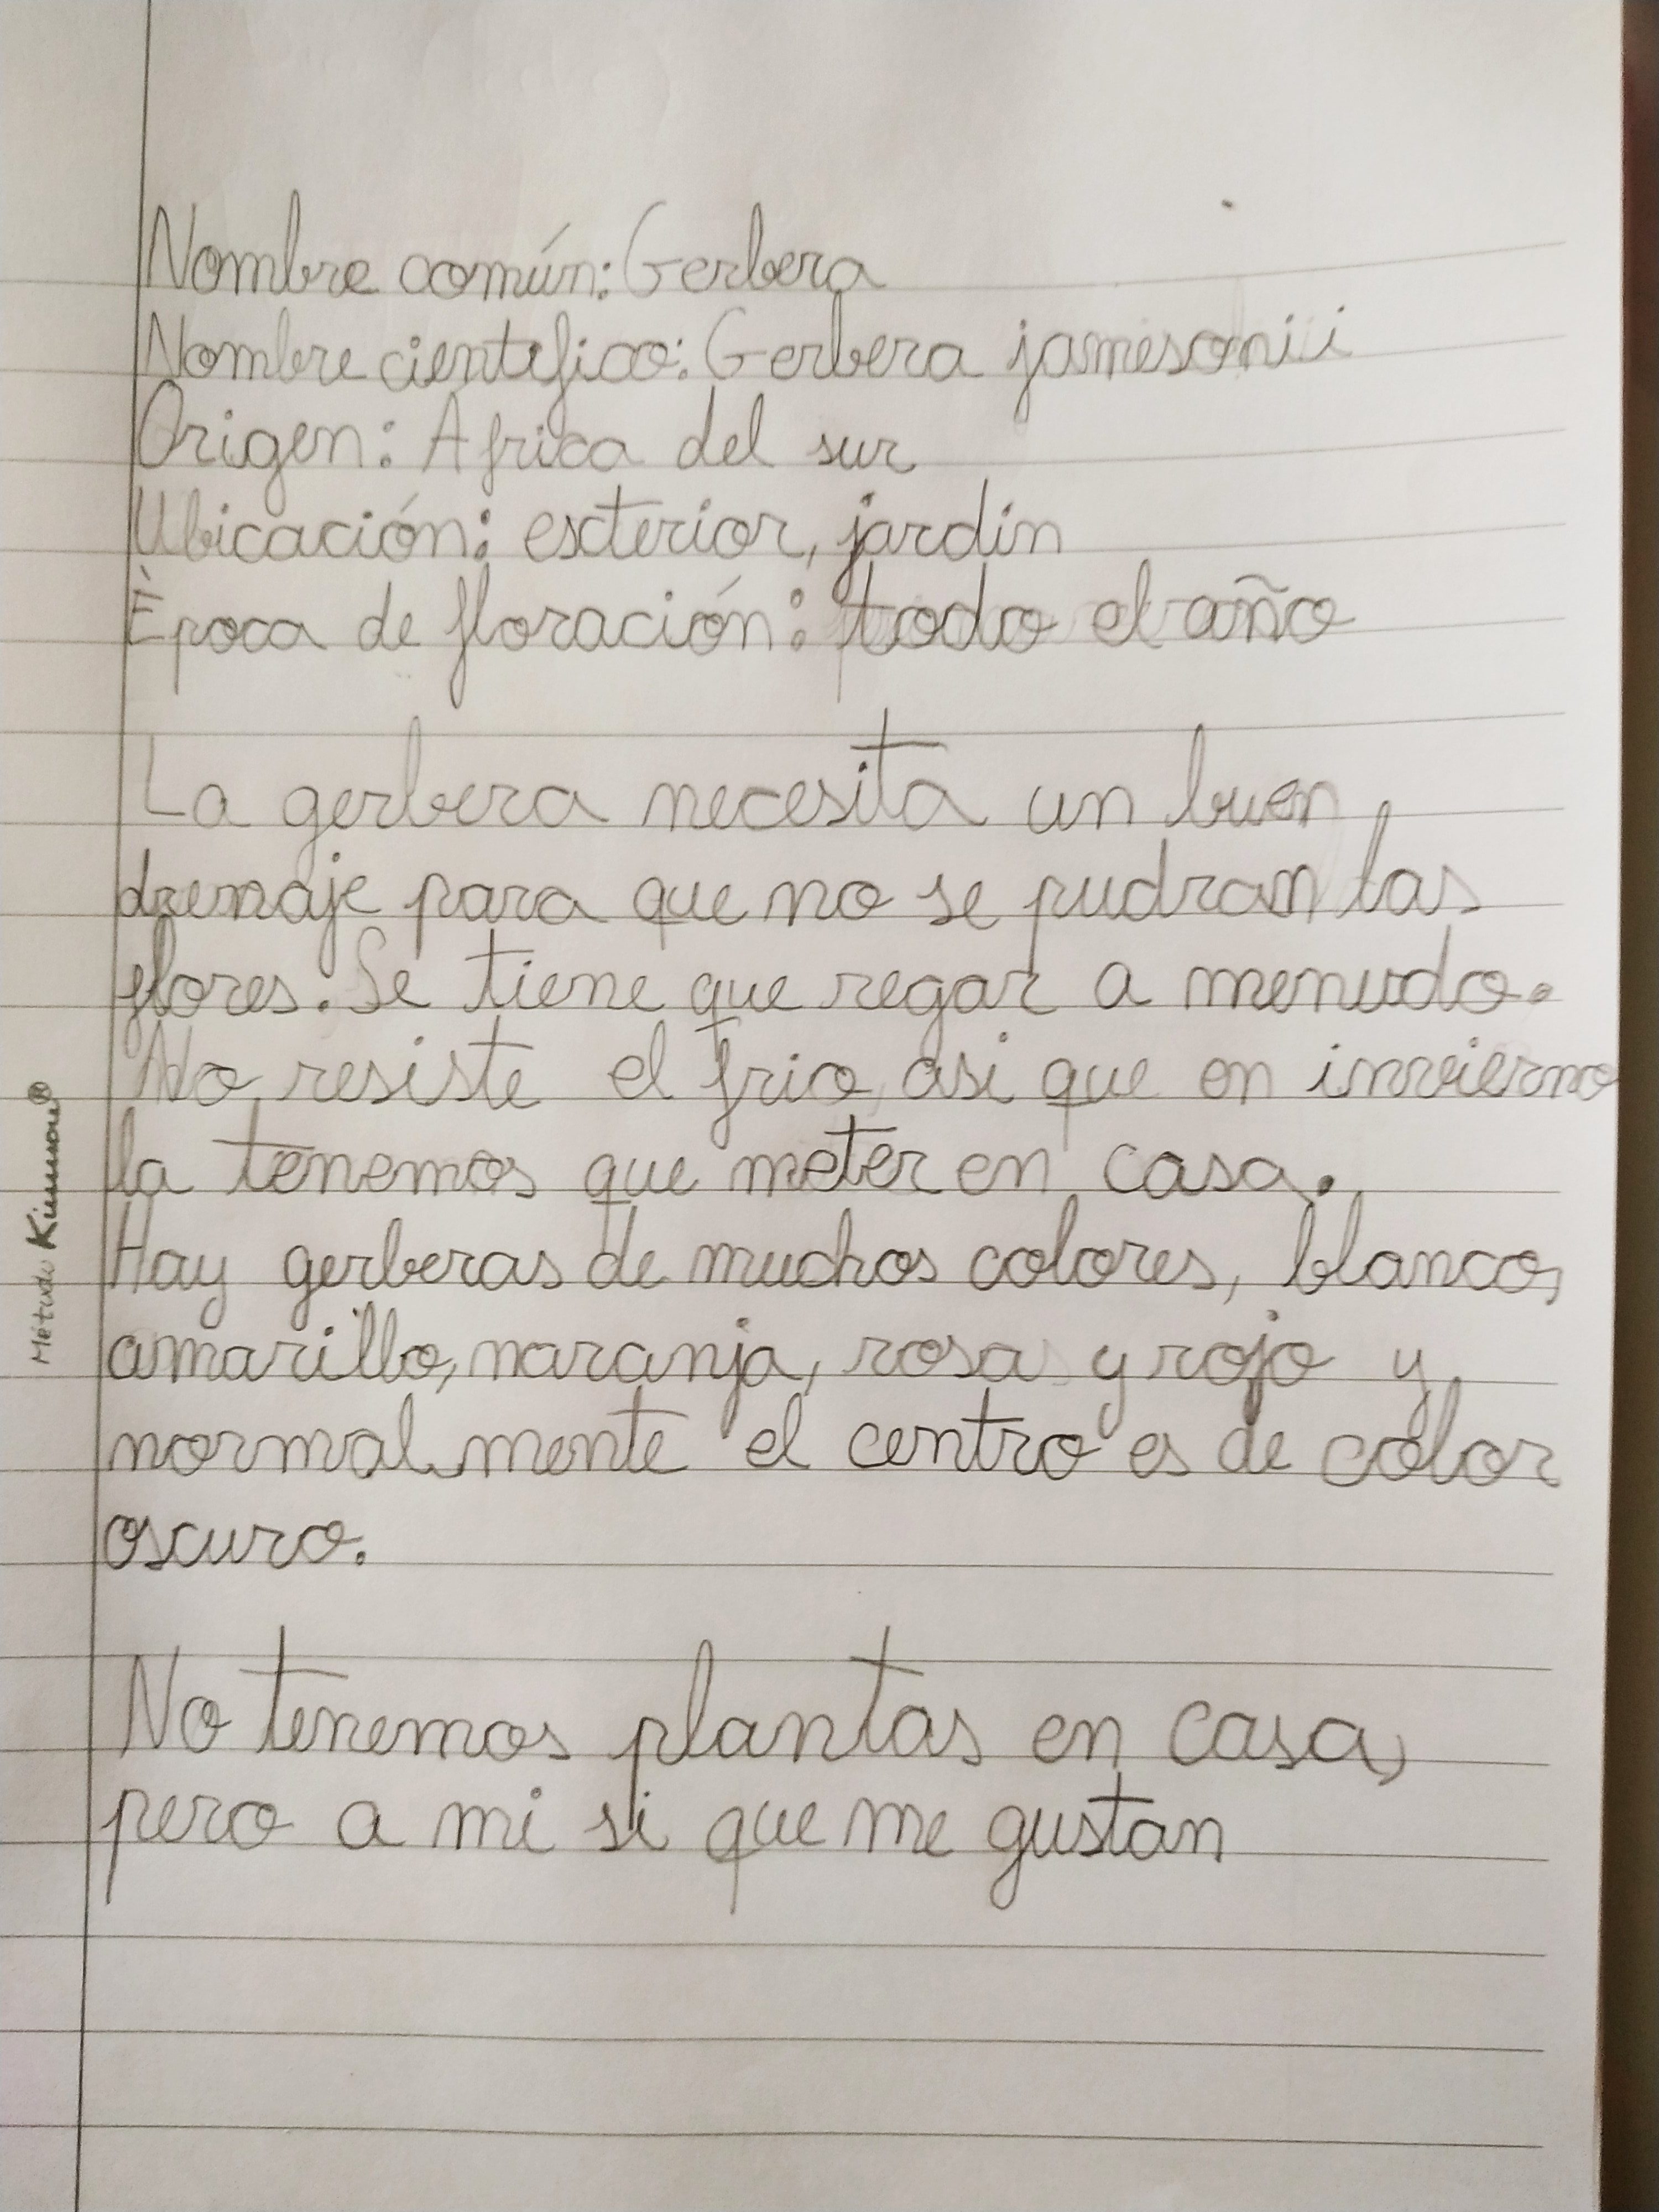 Nombre común: Gerbera
Nombre cientifico: Gerbera jamesonii
Origen: Africa del sur
Ubicación: exterior, jardin
Época de floración: todo el año
La gerbera necesita un buen
drenaje para que no se pudran las
flores. Se tiene que regar a menudo.
No resiste el frio, asi que en invierno
la tenemos que meter en casa.
Hay gerberas de muchos colores, blanco,
amarillo, naranja, rosa y rojo y
normalmente el centro es de color
oscuro.
No tenemos plantas en casa,
pero a mi si que me gustan
Método Kumon®